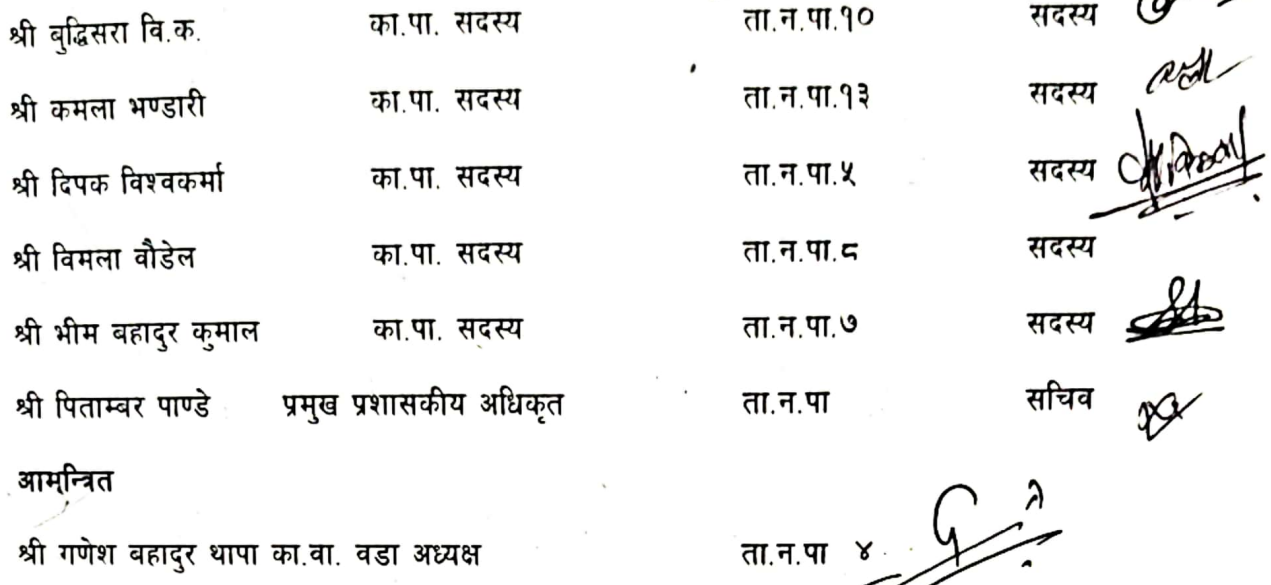 श्री बुद्धिसरा वि.क. का.पा. सदस्य ता.न.पा.१० सदस्य
श्री कमला भण्डारी का.पा. सदस्य ता.न.पा.१३ सदस्य
श्री दिपक विश्वकर्मा का.पा. सदस्य ता.न.पा.५ सदस्य
श्री विमला वौडेल का.पा. सदस्य ता.न.पा.८ सदस्य
श्री भीम बहादुर कुमाल का.पा. सदस्य ता.न.पा.७ सदस्य
श्री पिताम्बर पाण्डे प्रमुख प्रशासकीय अधिकृत ता.न.पा सचिव
आमन्त्रित
श्री गणेश बहादुर थापा का.वा. वडा अध्यक्ष ता.न.पा ४